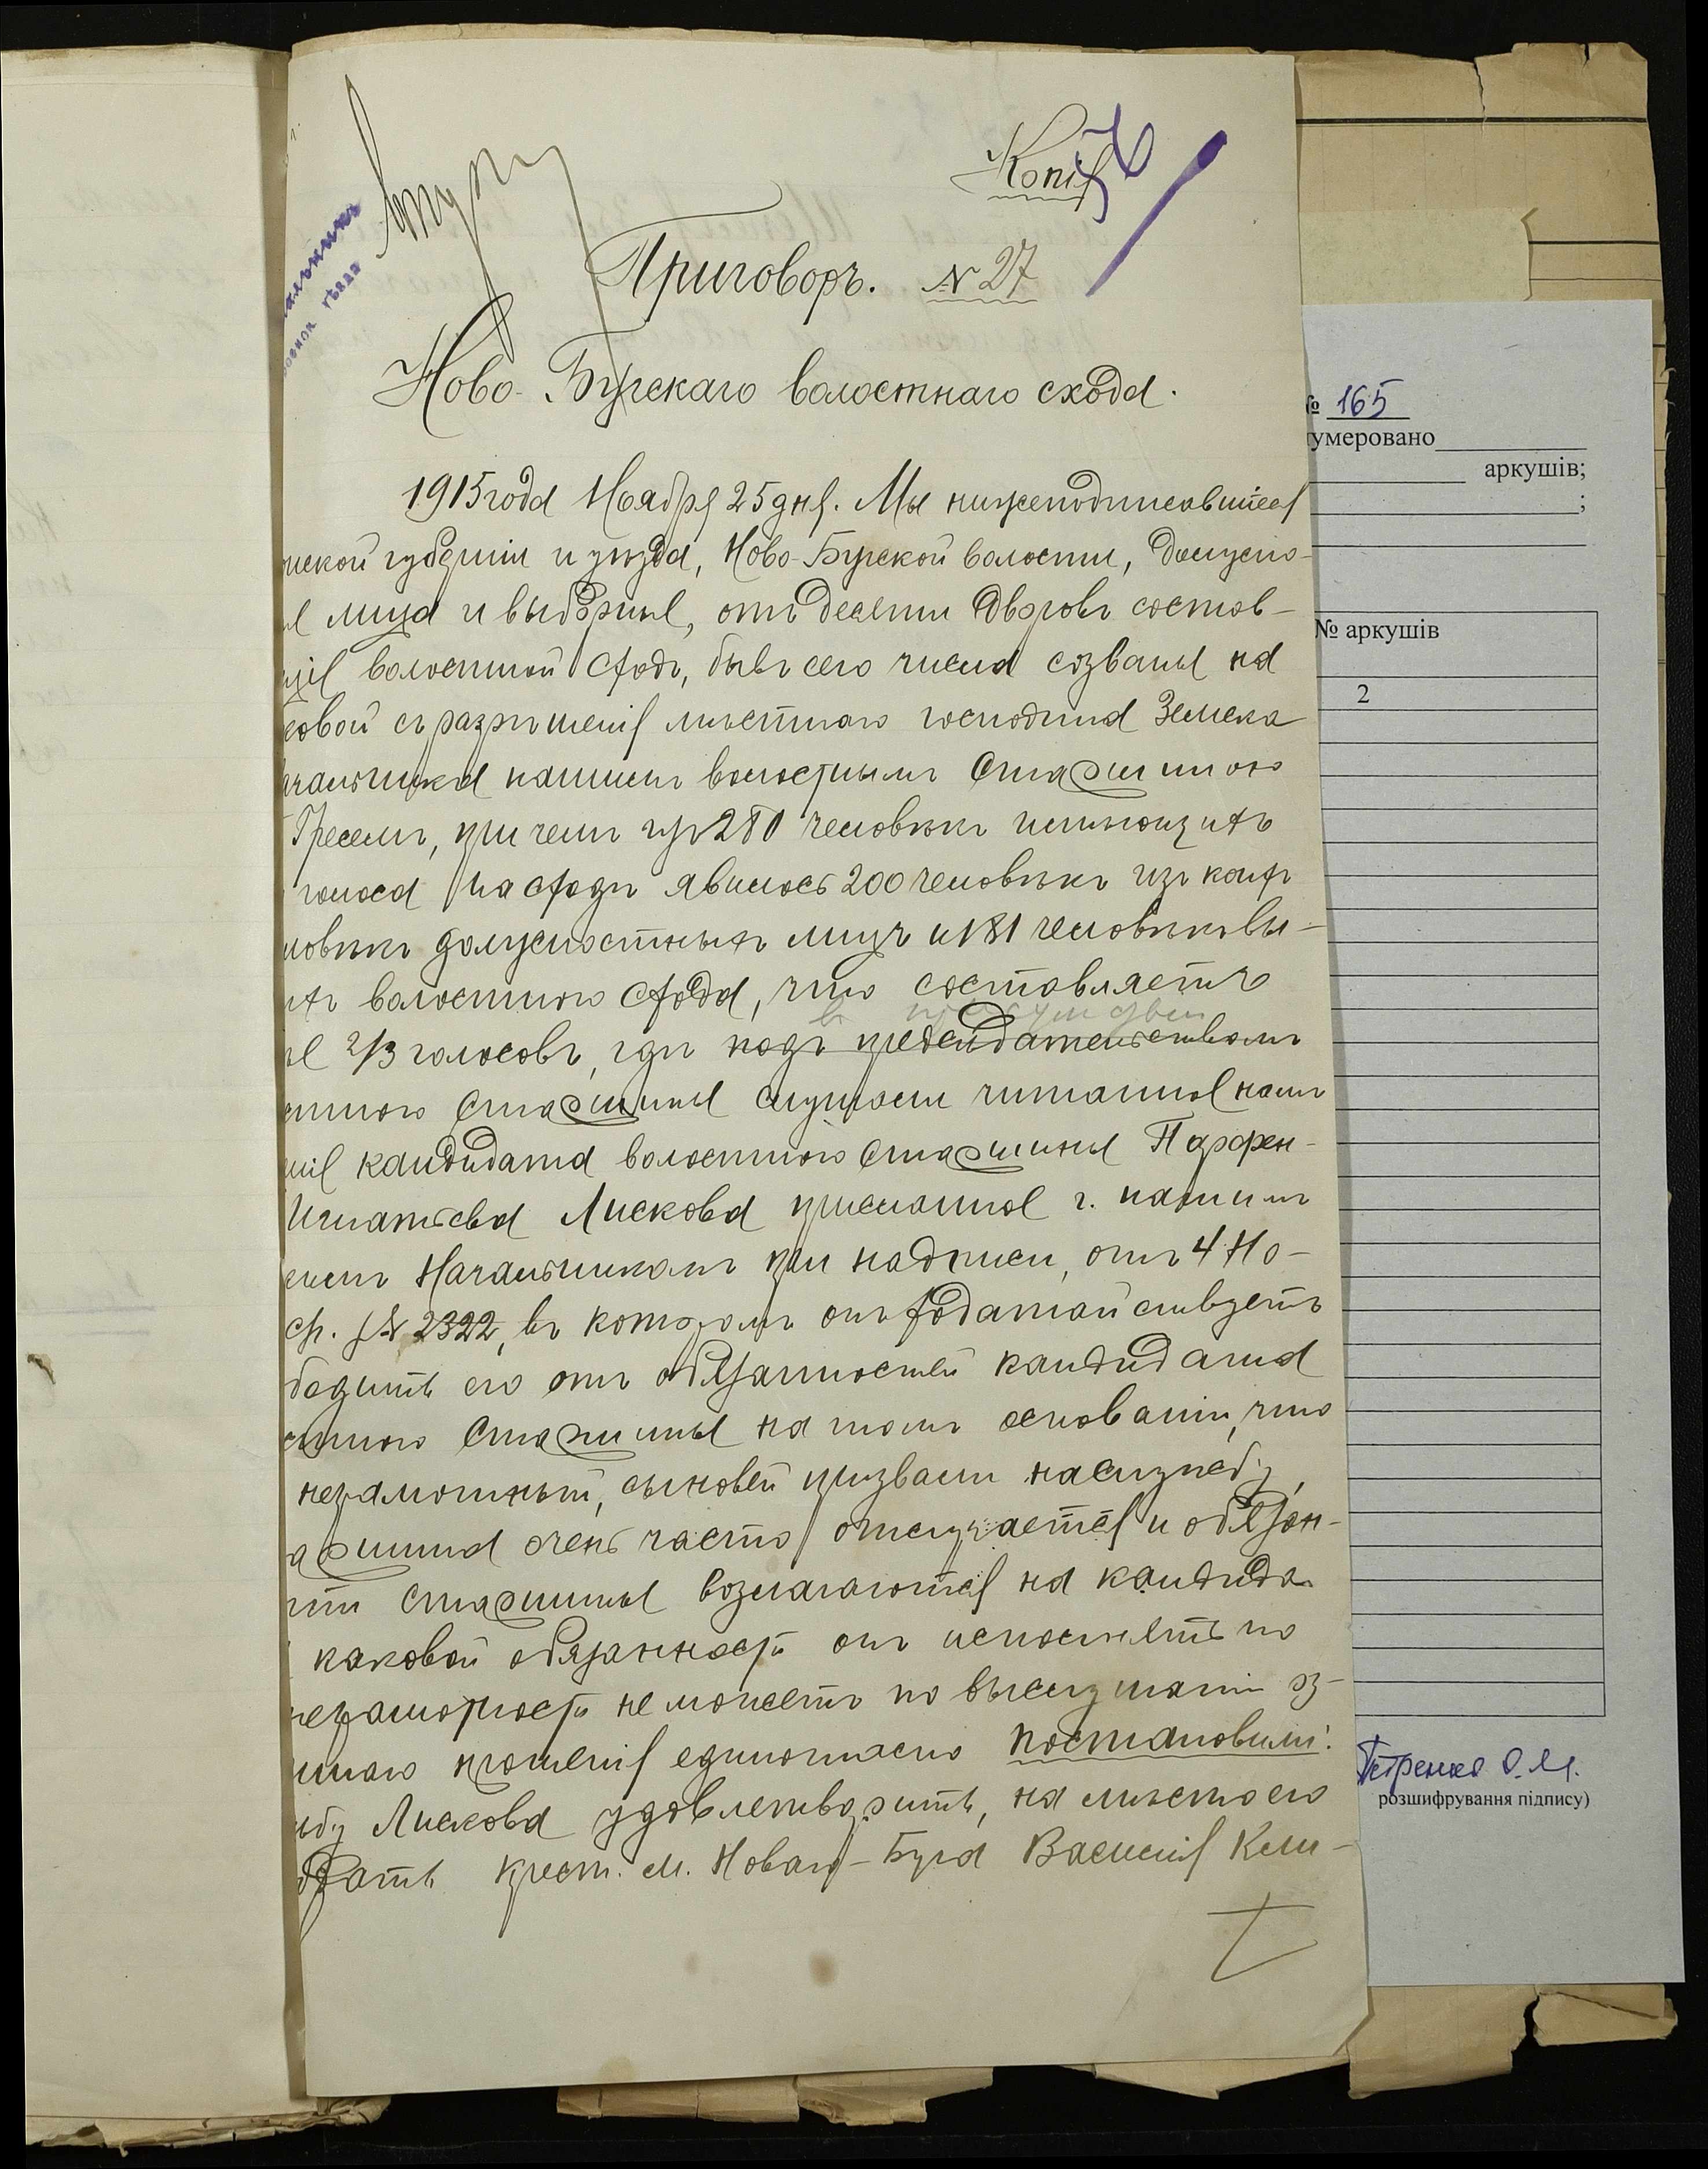 Копія
56
альникъ
уѣзда
Приговоръ. № 27
Ново-Бугскаго волостнаго схода.
1915 года Ноября 25 дня. Мы нижеподписавшіеся
нской губерніи и уѣзда, Ново-Бугской волости, должно-
я лица и выборные, отъ десяти дворовъ состав-
щіе волостной сходъ, бывъ сего числа созваны на
ковой съ разрѣшенія мѣстнаго господина Земска
ачальника нашимъ волостнымъ Старшиною
при чемъ изъ 280 человѣкъ имѣющихъ
голоса на сходъ явилось 200 человѣкъ изъ коихъ
ловѣкъ должностныхъ лицъ и 181 человѣкъ вы-
хъ волостного схода, что составляетъ
е 2/3 голосовъ, гдѣ подъ предсѣдательствомъ
въ присутствіи
стного Старшины слушали читанное намъ
ніе кандидата волостного Старшины Парфен-
Игнатьева Лискова присланное г. нашимъ
скимъ Начальникомъ при надписи, отъ 4 Но-
ср. № 2322, въ которомъ онъ ходатайствуетъ
бодить его отъ обязанностей кандидата
стного Старшины на томъ основаніи, что
неграмотный, сыновей призвали на службу,
аршина очень часто отлучается и обязан-
сти Старшины возлагаются на кандида
каковой обязанности онъ исполнять по
неграмотности не можетъ по выслушаніи оз-
ннаго прошенія единогласно постановили:
ьбу Лискова удовлетворить, на мѣсто его
брать крест. м. Новаго-Буга Василія Кли-
№ 165
умеровано
аркушів;
;
№ аркушів
2
Петренко О.М.
розшифрування підпису)